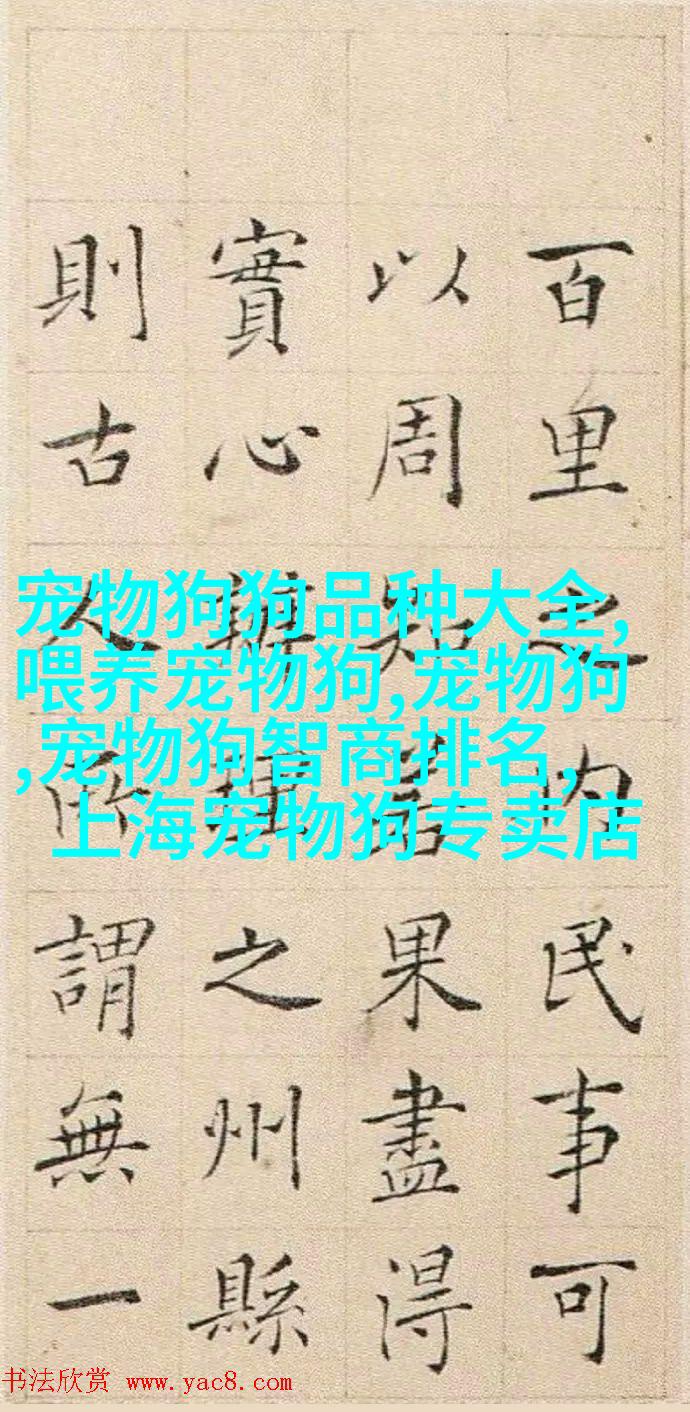 百里之内民事可
以周知若果盡得
實心辦理之州縣
則古人所謂無一
宠物狗狗品种大全,
喂养宠物狗,宠物狗
,宠物狗智商排名,
上海宠物狗专卖店
书法欣赏 www.yac8.com